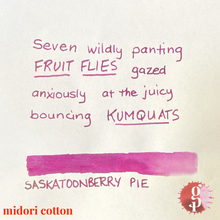 Seven wildly panting
FRUIT FLIES gazed
anxiously at the juicy
bouncing KUMQUATS
SASKATOONBERRY PIE
midori cotton
gp